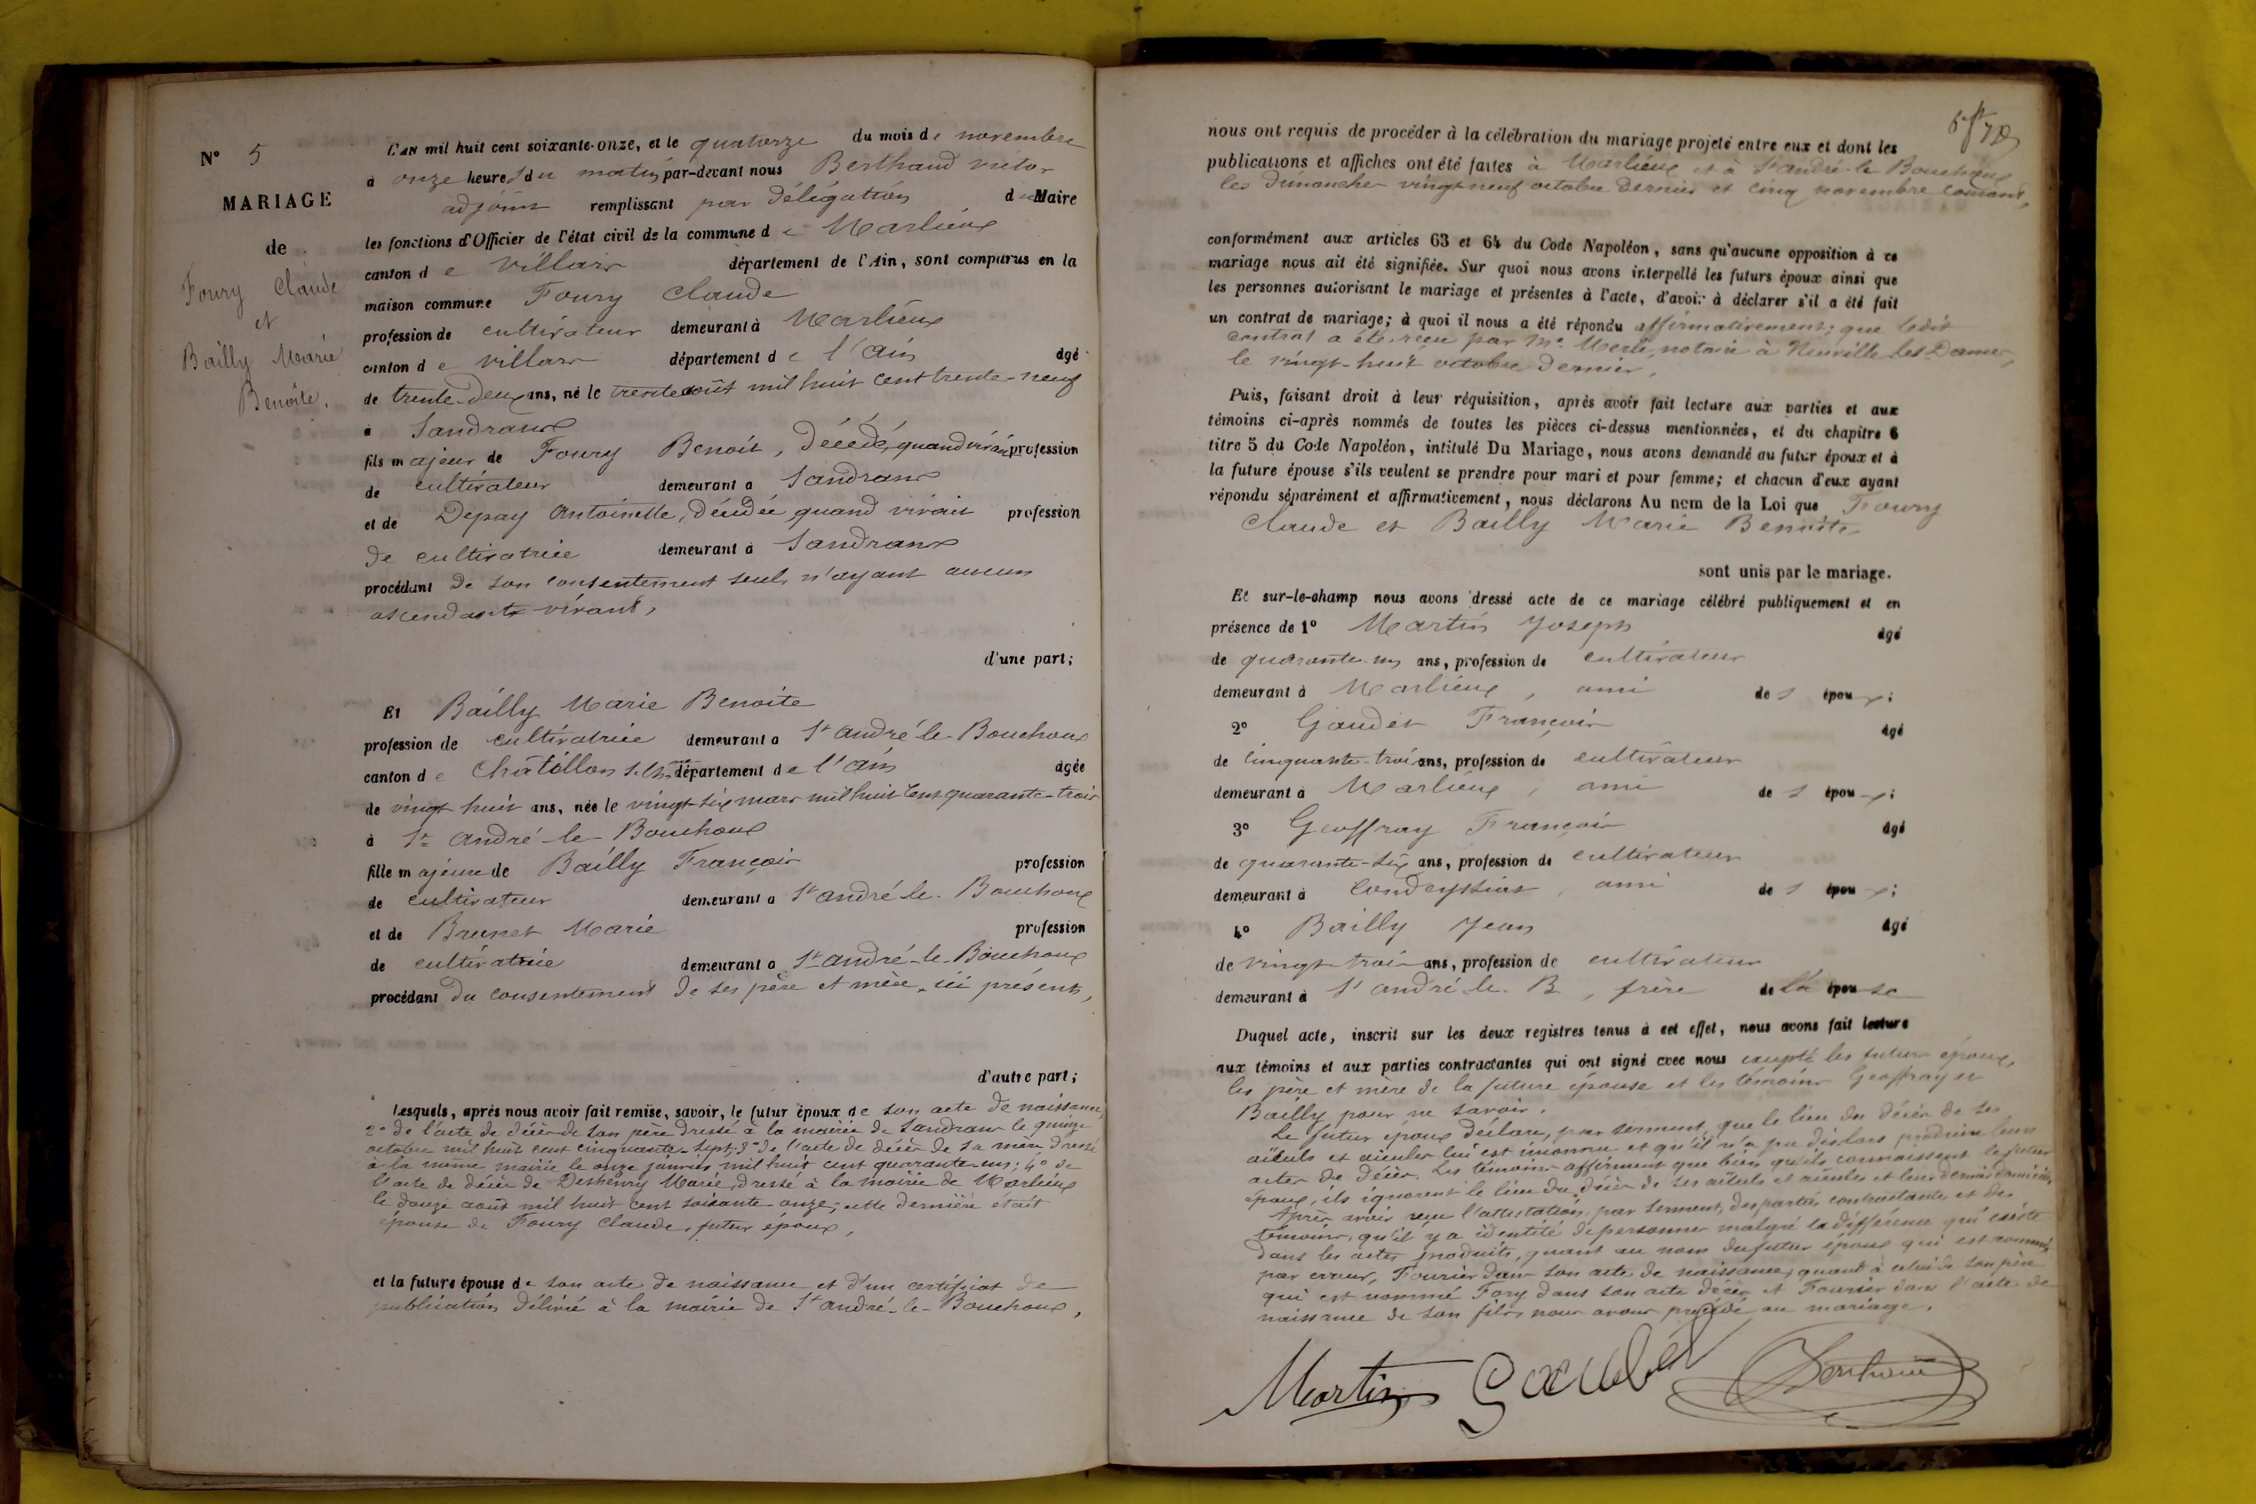 N° 5
MARIAGE
de
Foury Claude
et
Bailly Marie
Benoite.
L'AN mil huit cent soixante-onze, et le quatorze du mois de novembre
à onze heures du matin par-devant nous Berthaud victor
adjoint remplissant par délégation du Maire
les fonctions d'Officier de l'état civil de la commune de Marlieux
canton de Villars département de l'Ain, sont comparus en la
maison commune Foury Claude
profession de cultivateur demeurant à Marlieux
canton de villars département de l'Ain âgé
de trente-deux ans, né le trente août mil huit cent trente-neuf
à Sandrans
fils majeur de Foury Benoit, décédé, quand vivait profession
de cultivateur demeurant à Sandrans
et de Depay Antoinette, décédée quand vivait profession
de cultivatrice demeurant à Sandrans
procédant de son consentement seul, n'ayant aucun
ascendants vivant,
d'une part;
Et Bailly Marie Benoite
profession de cultivatrice demeurant à St André-le-Bouchoux
canton de Châtillon s. Ch. département de l'Ain âgée
de vingt huit ans, née le vingt-six mars mil huit cent quarante-trois
à St André-le-Bouchoux
fille majeure de Bailly François profession
de cultivateur demeurant à St André-le-Bouchoux
et de Brunet Marie profession
de cultivatrice demeurant à St André-le-Bouchoux
procédant du consentement de ses père et mère, ici présents,
d'autre part;
Lesquels, après nous avoir fait remise, savoir, le futur époux de son acte de naissance,
2° de l'acte de décès de son père dressé à la mairie de Sandrans le quinze
octobre mil huit cent cinquante-sept; 3° de l'acte de décès de sa mère dressé
à la même mairie le onze janvier mil huit cent quarante-un; 4° de
l'acte de décès de Deshenry Marie, dressé à la mairie de Marlieux
le douze août mil huit cent soixante-onze; cette dernière était
épouse de Foury Claude, futur époux,
et la future épouse de son acte de naissance et d'un certificat de
publication délivré à la mairie de St André-le-Bouchoux,
nous ont requis de procéder à la célébration du mariage projeté entre eux et dont les
publications et affiches ont été faites à Marlieux et à St André-le-Bouchoux
les dimanches vingt-neuf octobre dernier et cinq novembre courant,
conformément aux articles 63 et 64 du Code Napoléon, sans qu'aucune opposition à ce
mariage nous ait été signifiée. Sur quoi nous avons interpellé les futurs époux ainsi que
les personnes autorisant le mariage et présentes à l'acte, d'avoir à déclarer s'il a été fait
un contrat de mariage; à quoi il nous a été répondu affirmativement; que ledit
contrat a été reçu par Me Merle, notaire à Neuville-les-Dames,
le vingt-huit octobre dernier.
Puis, faisant droit à leur réquisition, après avoir fait lecture aux parties et aux
témoins ci-après nommés de toutes les pièces ci-dessus mentionnées, et du chapitre 6
titre 5 du Code Napoléon, intitulé Du Mariage, nous avons demandé au futur époux et à
la future épouse s'ils veulent se prendre pour mari et pour femme; et chacun d'eux ayant
répondu séparément et affirmativement, nous déclarons Au nom de la Loi que Foury
Claude et Bailly Marie Benoite
sont unis par le mariage.
Et sur-le-champ nous avons dressé acte de ce mariage célébré publiquement et en
présence de 1° Martin Joseph âgé
de quarante-un ans, profession de cultivateur
demeurant à Marlieux, ami des époux;
2° Gaudet François âgé
de cinquante-trois ans, profession de cultivateur
demeurant à Marlieux, ami des époux;
3° Geoffray François âgé
de quarante-six ans, profession de cultivateur
demeurant à Condeyssiat, ami des époux;
4° Bailly Jean âgé
de vingt-trois ans, profession de cultivateur
demeurant à St André-le-B., frère de la épouse
Duquel acte, inscrit sur les deux registres tenus à cet effet, nous avons fait lecture
aux témoins et aux parties contractantes qui ont signé avec nous excepté les futurs époux,
les père et mère de la future épouse et les témoins Geoffray et
Bailly pour ne savoir.
Le futur époux déclare, par serment, que le lieu du décès de ses
aïeuls et aïeules lui est inconnu et qu'il n'a pu dès lors produire leurs
actes de décès. Les témoins affirment que bien qu'ils connaissent le futur
époux, ils ignorent le lieu du décès de ses aïeuls et aïeules et leur dernier domicile.
Après avoir reçu l'attestation, par serment, des parties contractantes et des
témoins, qu'il y a identité de personnes malgré la différence qui existe
dans les actes produits, quant au nom du futur époux qui est nommé,
par erreur, Fourier dans son acte de naissance, quant à celui de son père
qui est nommé Fory dans son acte décès et Fourier dans l'acte de
naissance de son fils, nous avons procédé au mariage.
Martin Gaudet Berthaud